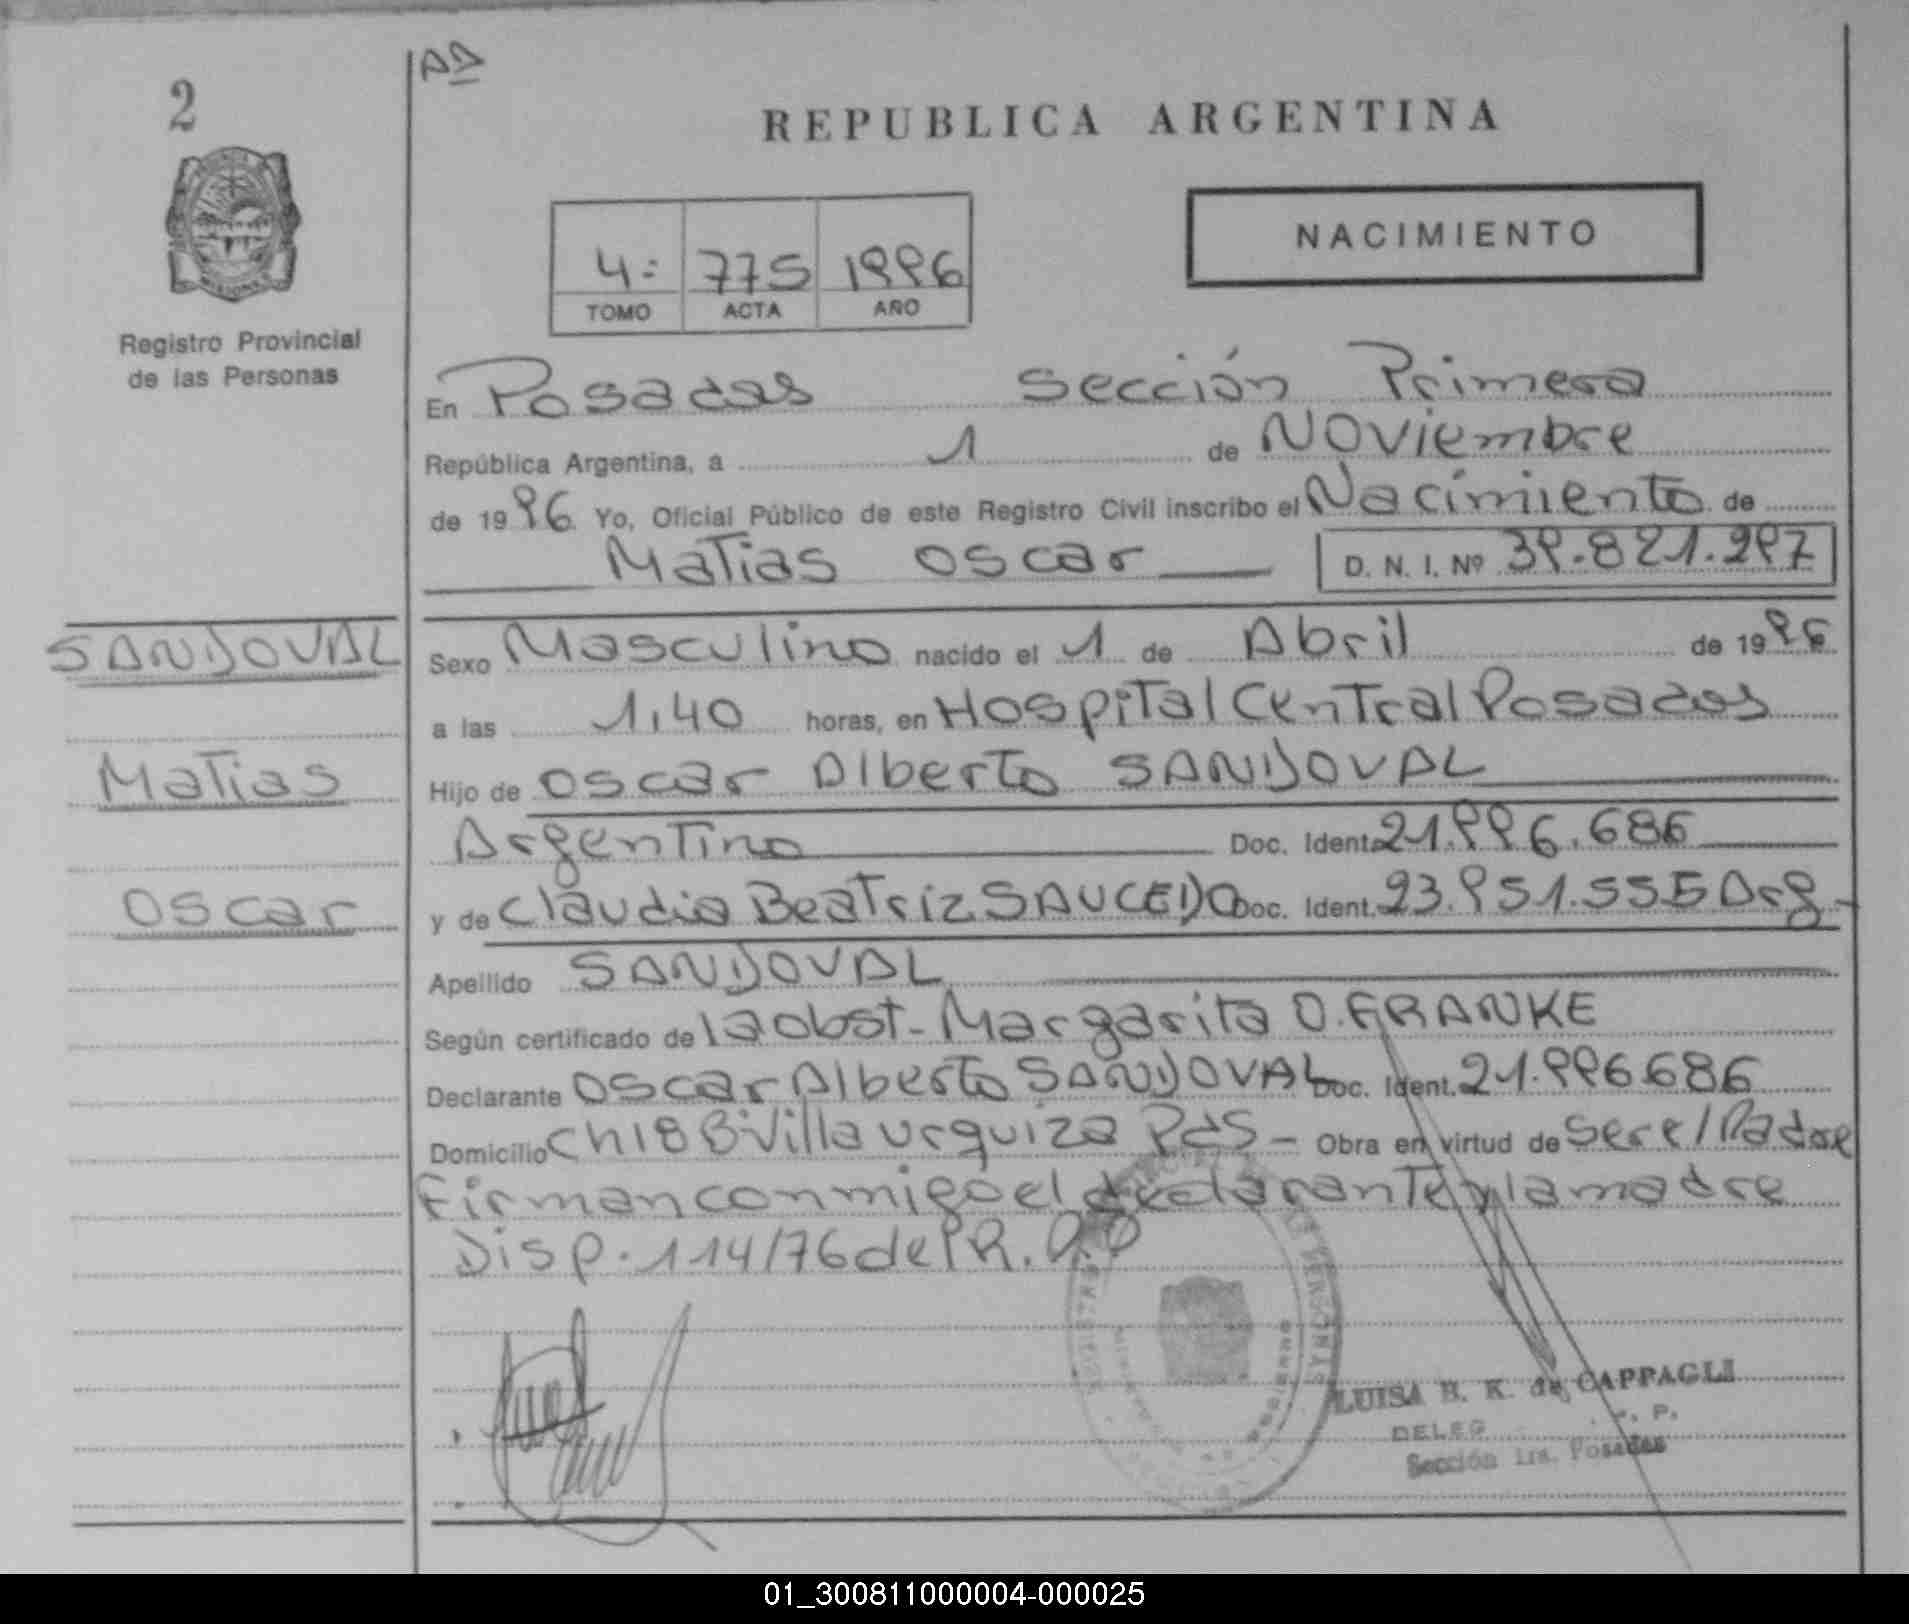 2
AD
REPUBLICA ARGENTINA
NACIMIENTO
4: 775 1996
TOMO ACTA AÑO
Registro Provincial
de las Personas
En Posadas Sección Primera
República Argentina, a 1 de Noviembre
de 1996 Yo, Oficial Público de este Registro Civil inscribo el Nacimiento de
Matias Oscar D. N. I. Nº 39.821.297
SANDOVAL
Matias
Oscar
Sexo Masculino nacido el 1 de Abril de 1996
a las 1,40 horas, en Hospital Central Posadas
Hijo de Oscar Alberto SANDOVAL
Argentino Doc. Ident. 21.996.686
y de Claudia Beatriz SAUCEDO Doc. Ident. 23.951.555 Arg.
Apellido SANDOVAL
Según certificado de la obst- Margarita O. FRANKE
Declarante Oscar Alberto SANDOVAL Doc. Ident. 21.996686
Domicilio Ch188 Villa Urquiza Pdas - Obra en virtud de ser el Padre
Firman conmigo el declarante y la madre
Disp. 114/76 del R.
LUISA H. K. de CAPPAGLI
DELEG
Sección 1ra. Posadas
01_300811000004-000025